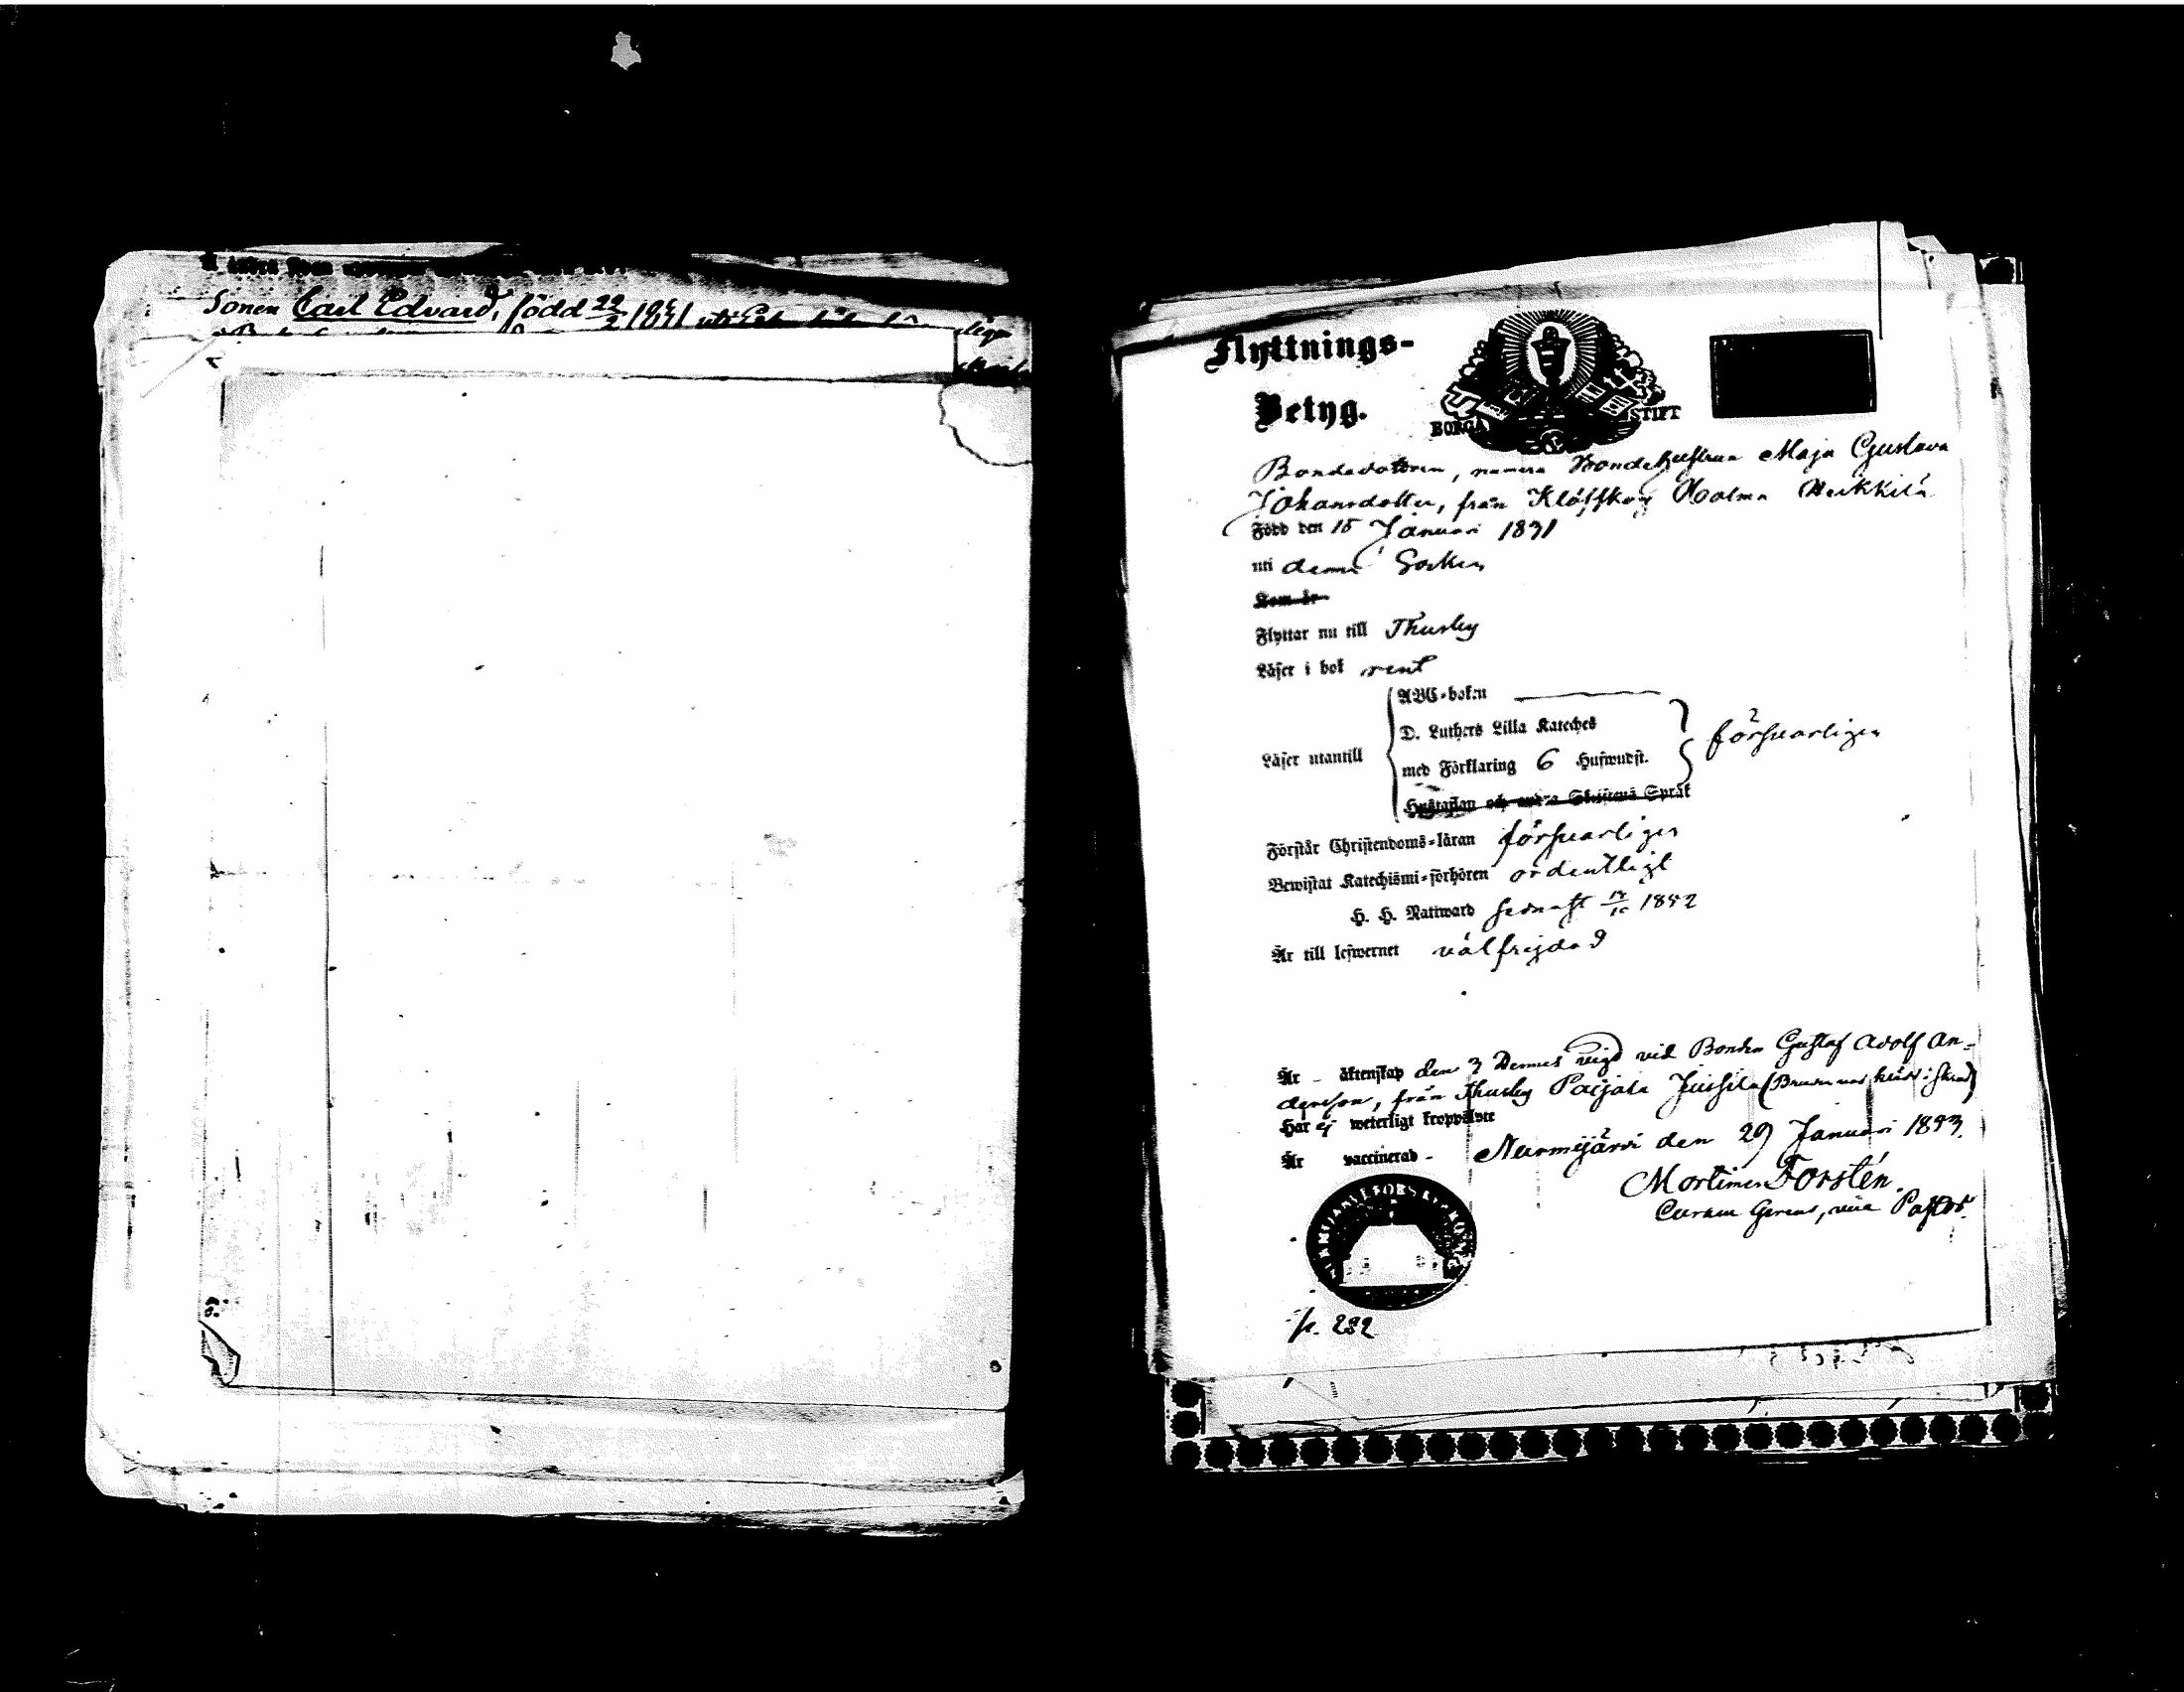 Sonen Carl Edvard, född 22/2
Flyttnings-
Betyg.
BORGÅ STIFT
Bondedottren, numera Bondehustrun Maja Gustava
Johansdotter, från Klöfskog Holma Heikkilä
Född den 15 Januari 1831
uti denna Socken
Kom år
Flyttar nu till Thusby
Läser i bok rent
ABC-boken
D. Luthers Lilla Kateches
Läser utantill
med Förklaring 6 Hufwudst.
försvarligen
Hustaflan och andra Skriftenes Språk
Förstår Christendoms-läran försvarligen
Bewistat Katechismi-förhören ordentligt
H. H. Nattward senast 17/10 1852
Är till lefwernet välfrejdad
Är äktenskap den 3 Dennes vigd vid Bonden Gustaf Adolf An-
dersson, från Thusby Paijala Jussila (Bruden var klädd i skrud)
Har ej weterligt kroppslyte
Är vaccinerad - Nurmijärvi den 29 Januari 1853.
Mortimer Forstén.
Curam Gerens, vice Pastor.
p. 282